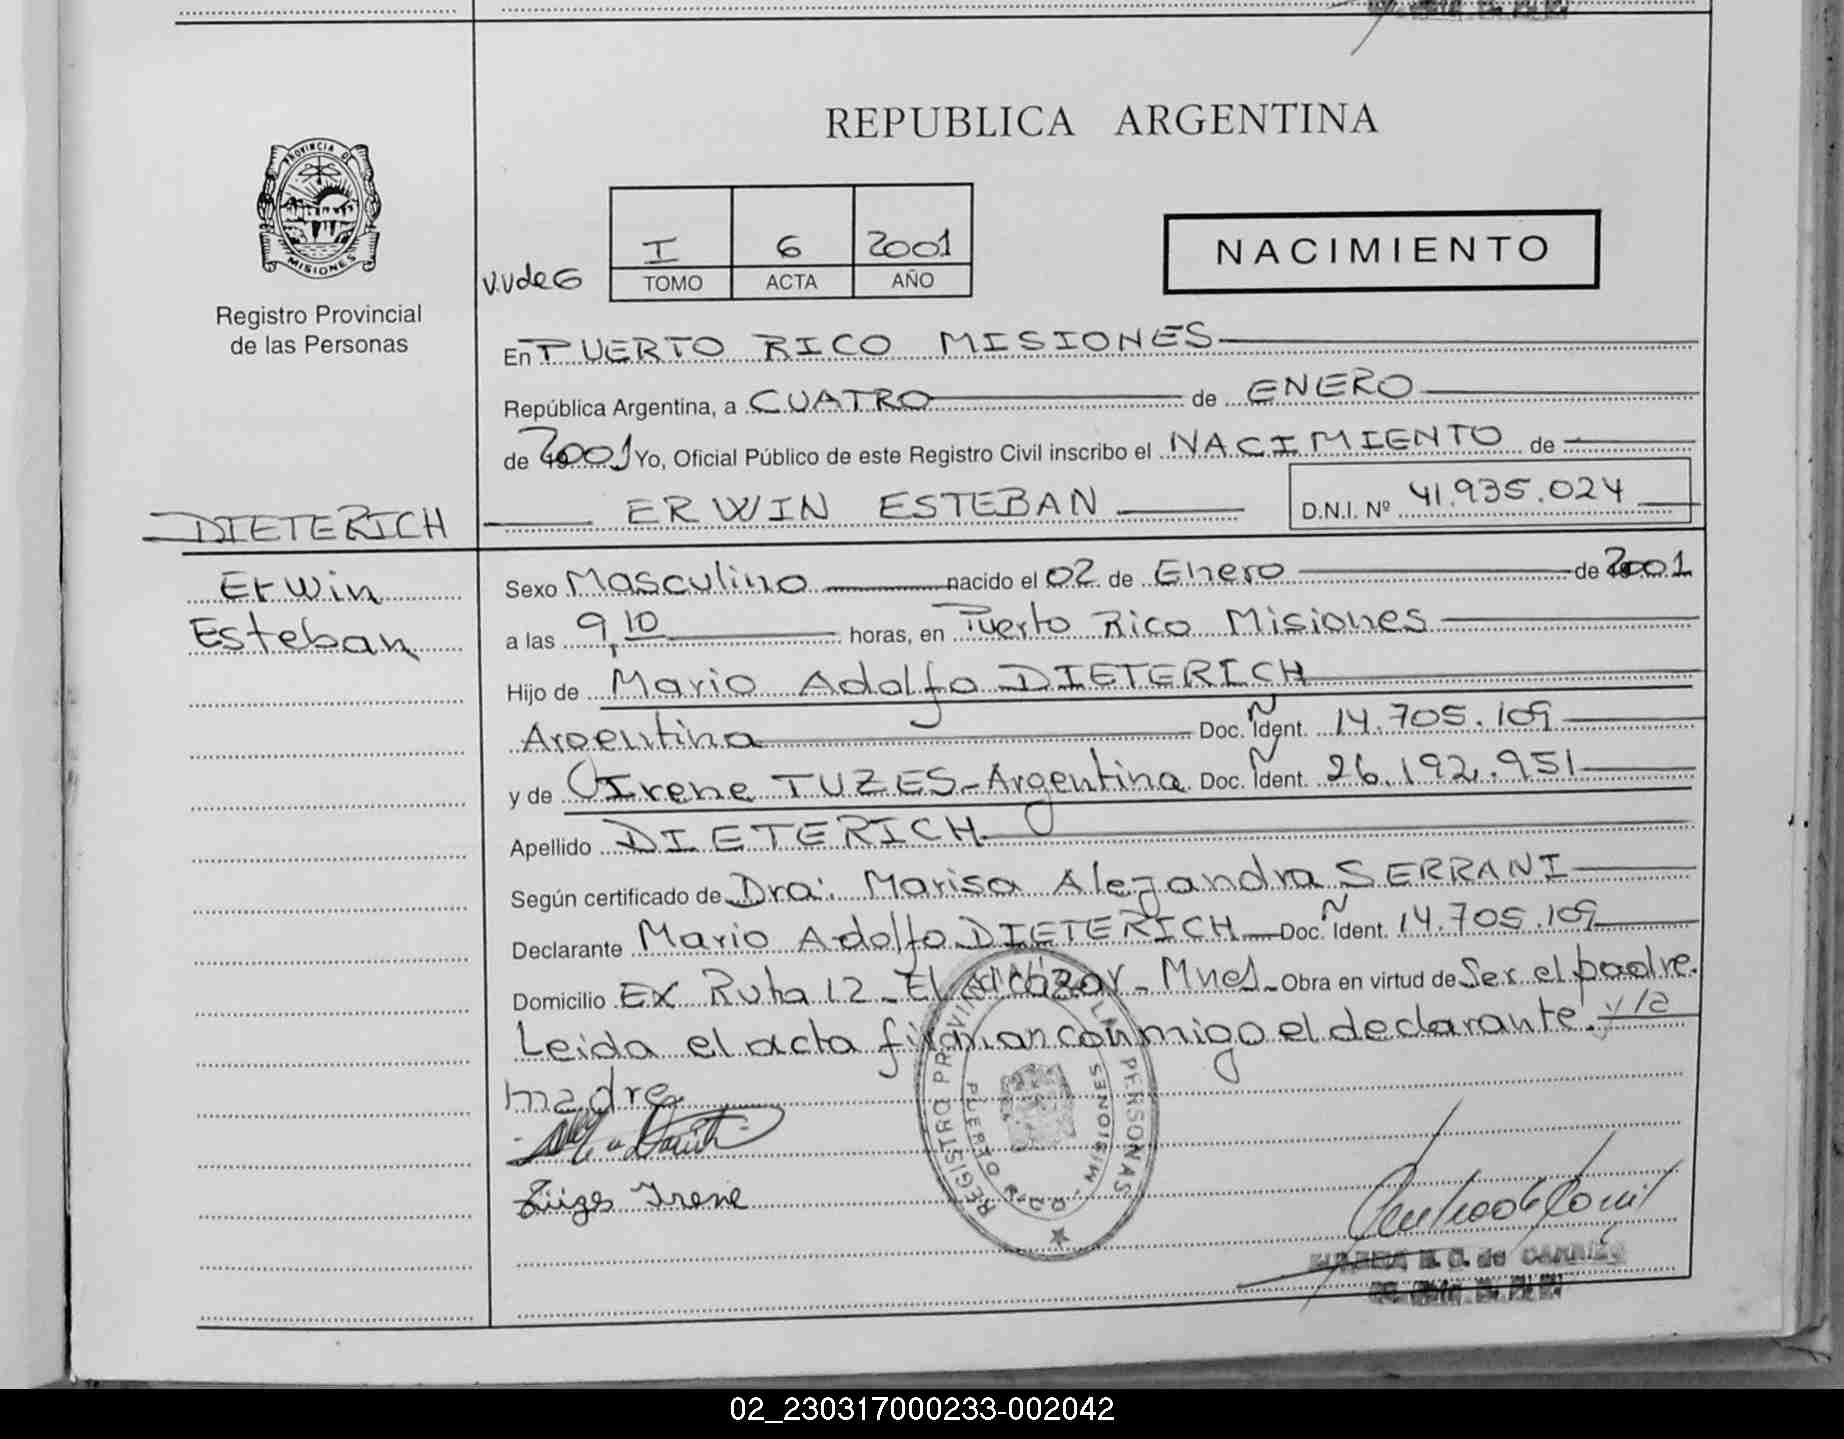 REPUBLICA ARGENTINA
PROVINCIA DE
MISIONES
Registro Provincial
de las Personas
I 6 2001
V.Vde G TOMO ACTA AÑO
NACIMIENTO
En PUERTO RICO MISIONES
República Argentina, a CUATRO de ENERO
de 2001 Yo, Oficial Público de este Registro Civil inscribo el NACIMIENTO de
DIETERICH ERWIN ESTEBAN D.N.I. Nº 41.935.024
Erwin
Esteban
Sexo Masculino nacido el 02 de Enero de 2001
a las 9,10 horas, en Puerto Rico Misiones
Hijo de Mario Adolfo DIETERICH
Argentina Doc. Ñ Ident. 14.705.109
y de Irene TUZES - Argentina Doc. Ñ Ident. 26.192.951
Apellido DIETERICH
Según certificado de Dra: Marisa Alejandra SERRANI
Declarante Mario Adolfo DIETERICH Doc. Ñ Ident. 14.705.109
Domicilio EX Ruta 12 - El Alcázar - Mnes - Obra en virtud de Ser el padre.
Leida el acta firman conmigo el declarante y la
madre
REGISTRO PROVINCIAL PERSONAS
PUERTO RICO - MISIONES
Züges Irene
de CARRIÉS
02_230317000233-002042